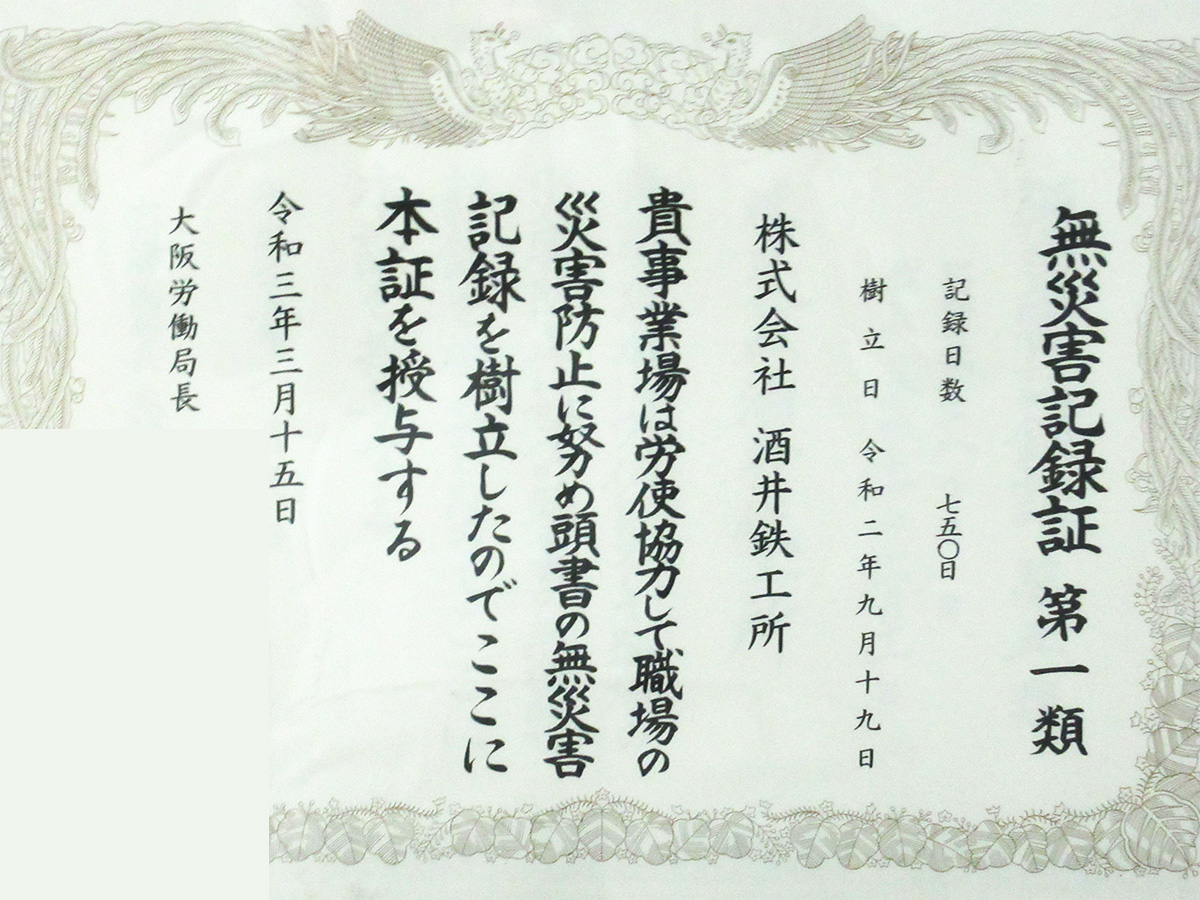 無災害記録証 第一類
記録日数 七五〇日
樹立日 令和二年九月十九日
株式会社 酒井鉄工所
貴事業場は労使協力して職場の
災害防止に努め頭書の無災害
記録を樹立したのでここに
本証を授与する
令和三年三月十五日
大阪労働局長